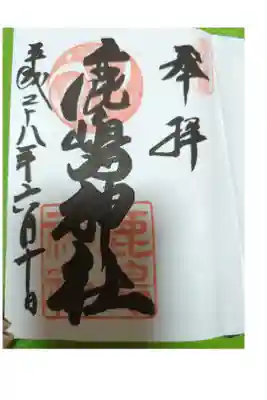 奉拝
鹿嶋神社
平成二十八年六月十日